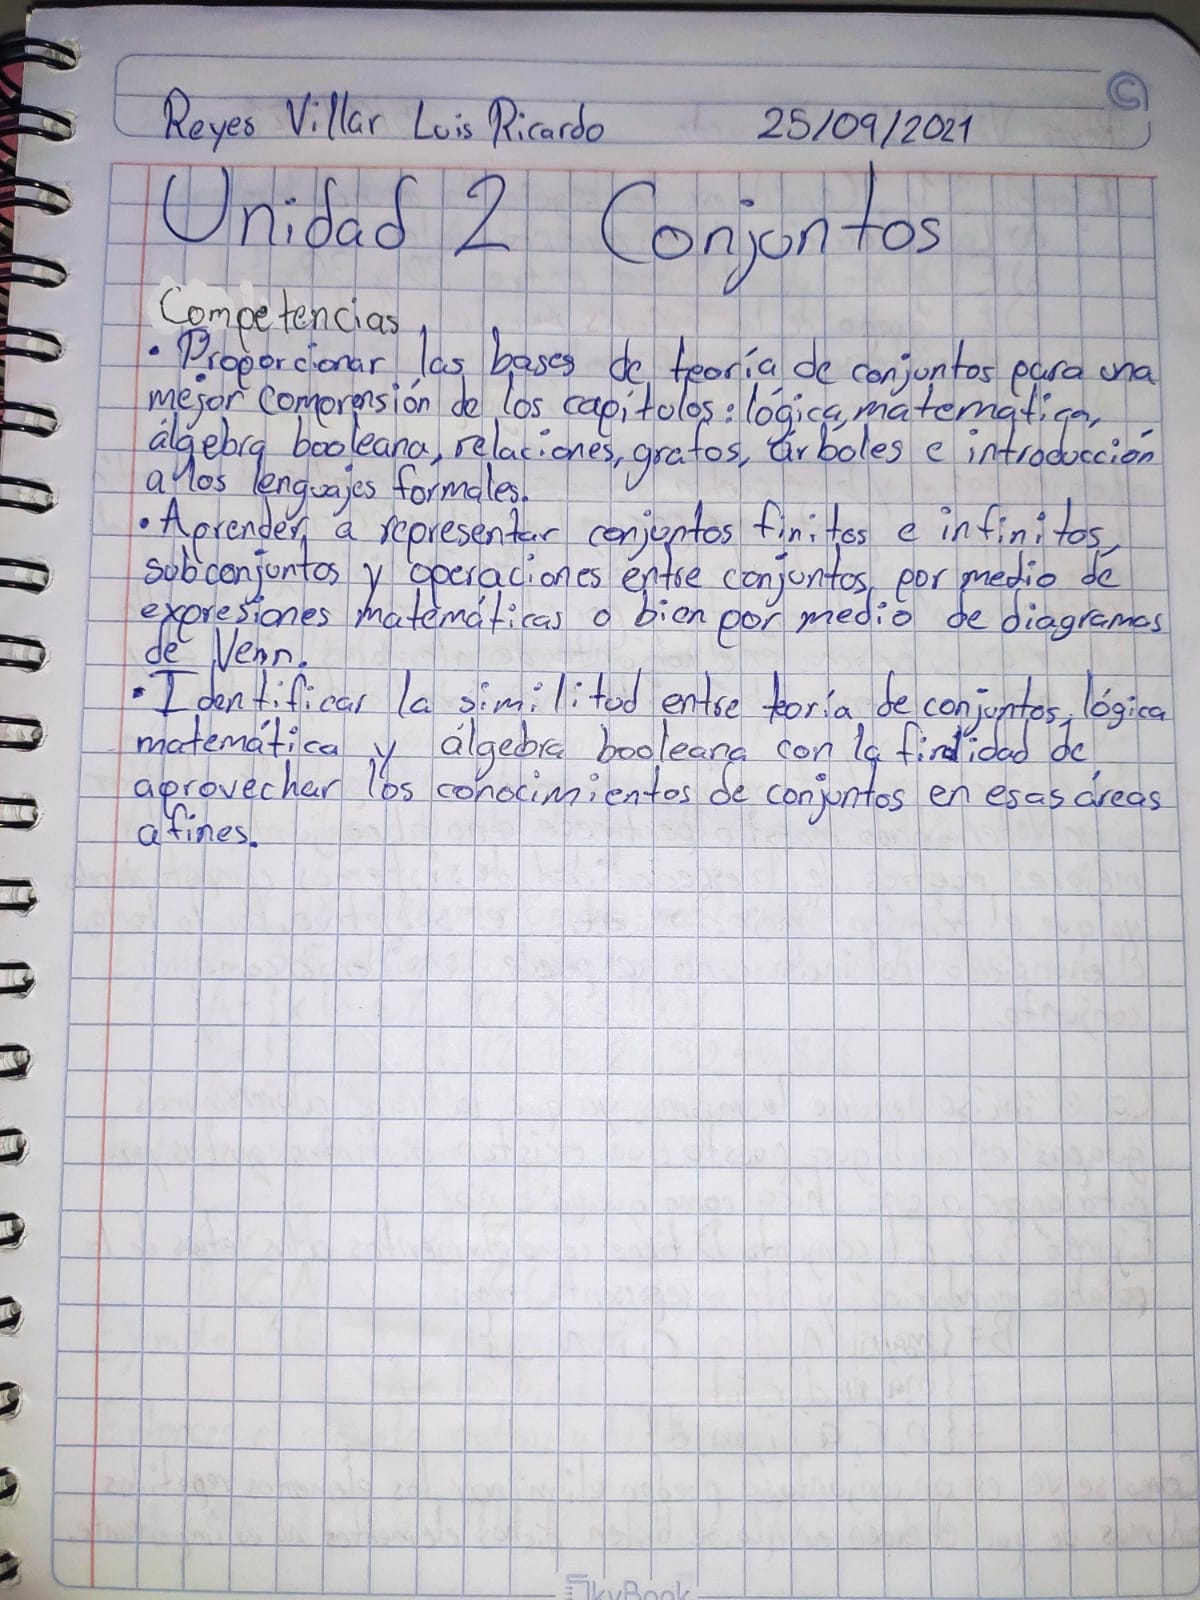 Reyes Villar Luis Ricardo 25/09/2021
Unidad 2 Conjuntos
Competencias
• Proporcionar las bases de teoría de conjuntos para una
mejor comprensión de los capítulos: lógica, matemática,
álgebra booleana, relaciones, grafos, árboles e introducción
a los lenguajes formales.
• Aprender a representar conjuntos finitos e infinitos,
subconjuntos y operaciones entre conjuntos, por medio de
expresiones matemáticas o bien por medio de diagramas
de Venn.
• Identificar la similitud entre teoría de conjuntos, lógica
matemática y álgebra booleana con la findidad de
aprovechar los conocimientos de conjuntos en esas áreas
afines.
SkyBook